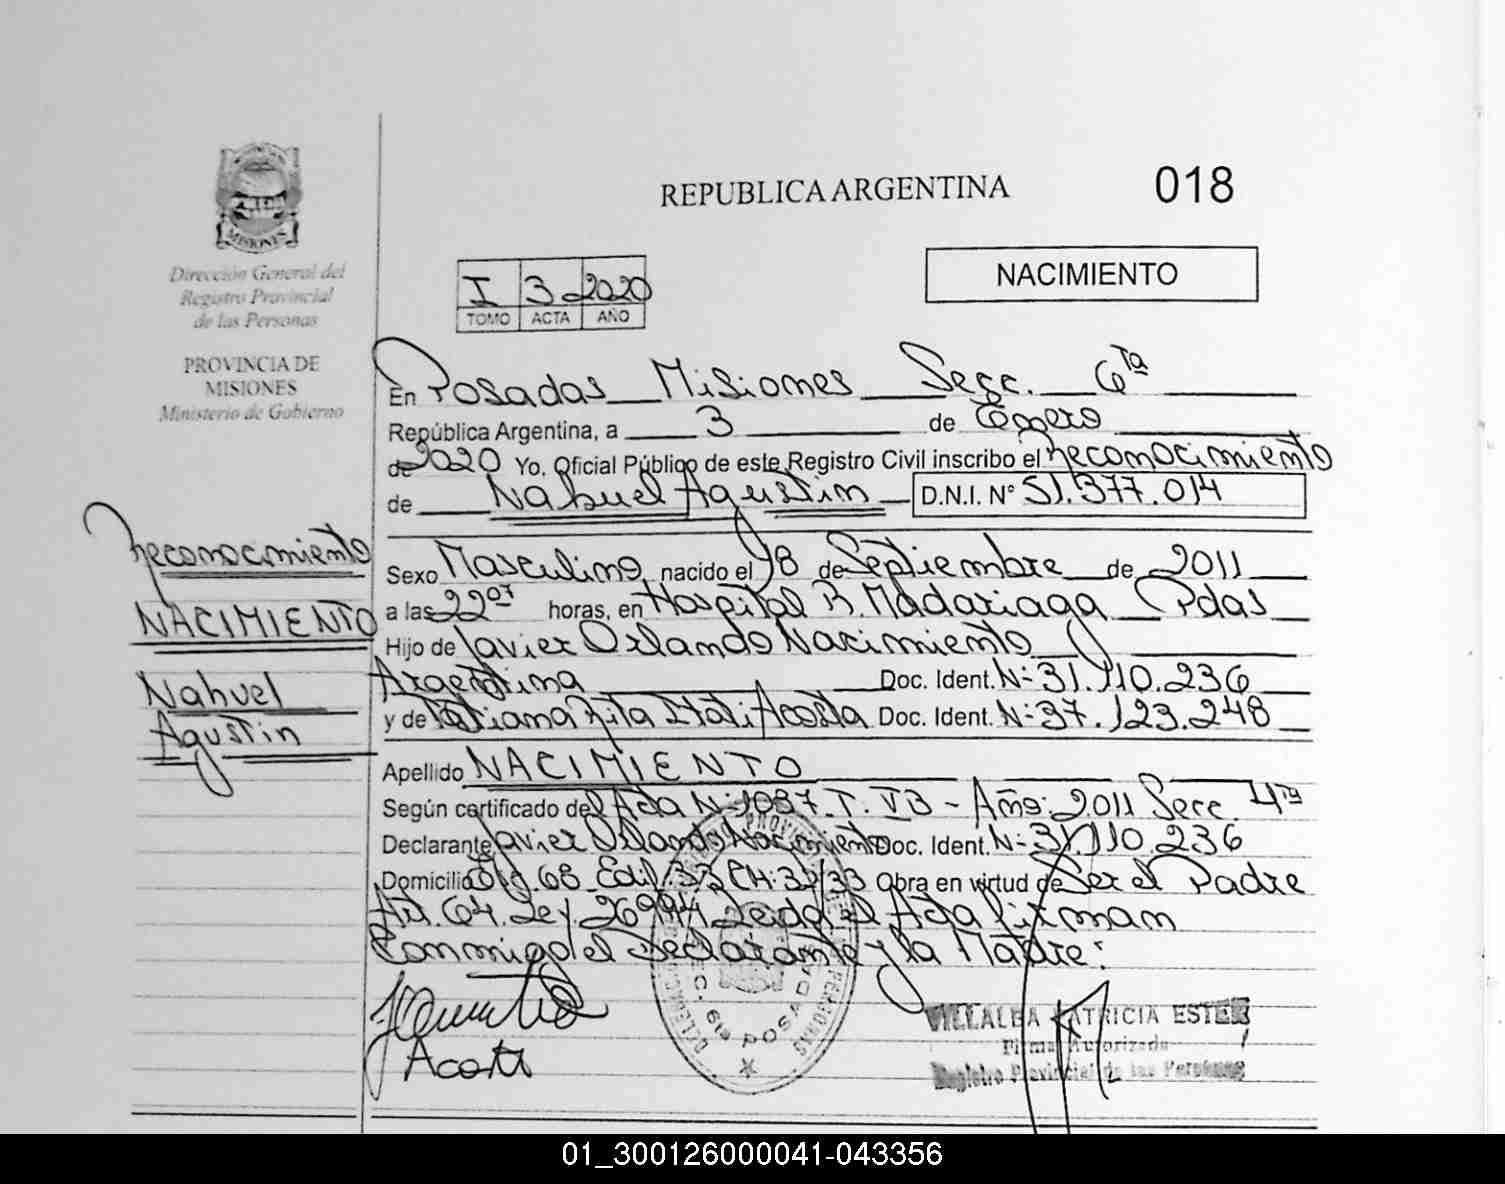 REPUBLICA ARGENTINA
018
MISIONES
Dirección General del
Registro Provincial
de las Personas
PROVINCIA DE
MISIONES
Ministerio de Gobierno
I 3 2020
TOMO ACTA AÑO
NACIMIENTO
En Posadas Misiones Secc. 6ta
República Argentina, a 3 de Enero
de 2020 Yo. Oficial Público de este Registro Civil inscribo el Reconocimiento
de Nahuel Agustin D.N.I. N° 51.377.014
Reconocimiento
NACIMIENTO
Nahuel
Agustin
Sexo Masculino, nacido el 18 de Septiembre de 2011
a las 22 07 horas, en Hospital R. Madariaga Pdas
Hijo de Javier Orlando Nacimiento
Argentina Doc. Ident. N: 31.110.236
y de Tatiana Rita Itati Acosta Doc. Ident. N: 37.123.248
Apellido NACIMIENTO
Según certificado del Acta N: 1087. T. VB - Año: 2011 Secc. 4ta
Declarante Javier Orlando Nacimiento Doc. Ident. N: 31.110.236
Domicilio 68 Edif. 33 CH: 32/33 Obra en virtud de Ser el Padre
Art. 64. Ley 26994 Leida el Acta Firman
Conmigo el Declarante y la Madre:
Acosta
POSADAS
VILLALBA PATRICIA ESTER
Firma Autorizada
Registro Provincial de las Personas
01_300126000041-043356